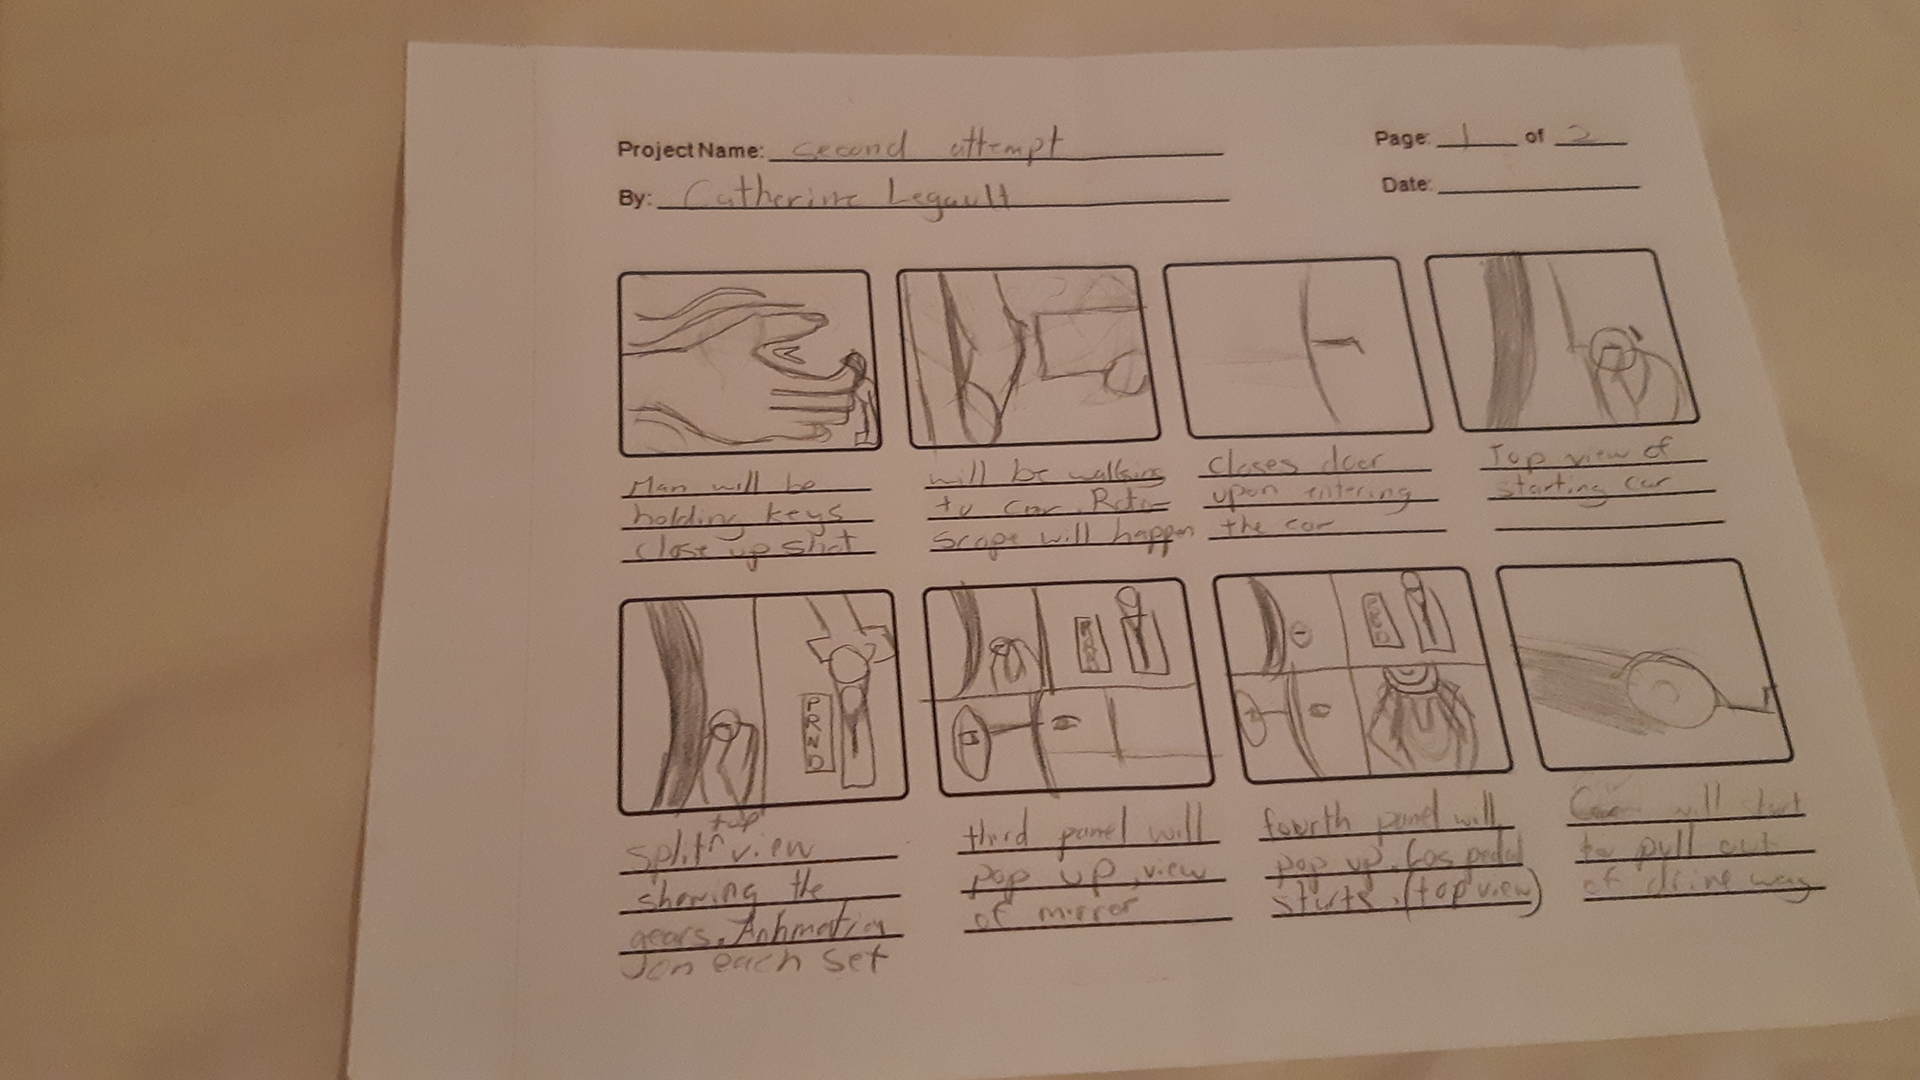 Project Name: second attempt
Page: 1 of 2
By: Catherine Legault
Date:
Man will be
holding keys
close up shot
will be walking
to car. Roto-
Scope will happen
closes door
upon entering
the car
Top view of
starting car
P
R
N
D
top
split ^ view
showing the
gears. Anhmation
on each set
third panel will
pop up, view
of mirror
fourth panel will
pop up. Gas pedal
starts. (top view)
will start
to pull out
of drive way